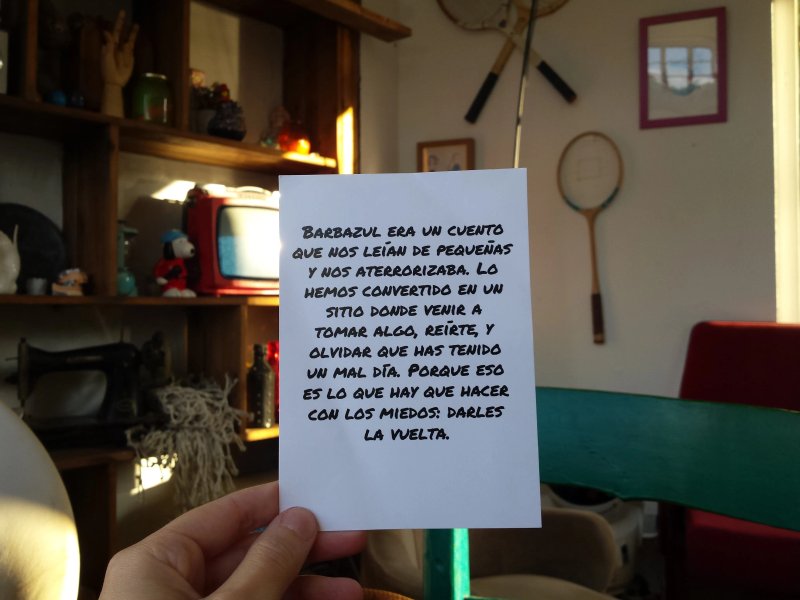 Barbazul era un cuento
que nos leían de pequeñas
y nos aterrorizaba. Lo
hemos convertido en un
sitio donde venir a
tomar algo, reírte, y
olvidar que has tenido
un mal día. Porque eso
es lo que hay que hacer
con los miedos: darles
la vuelta.